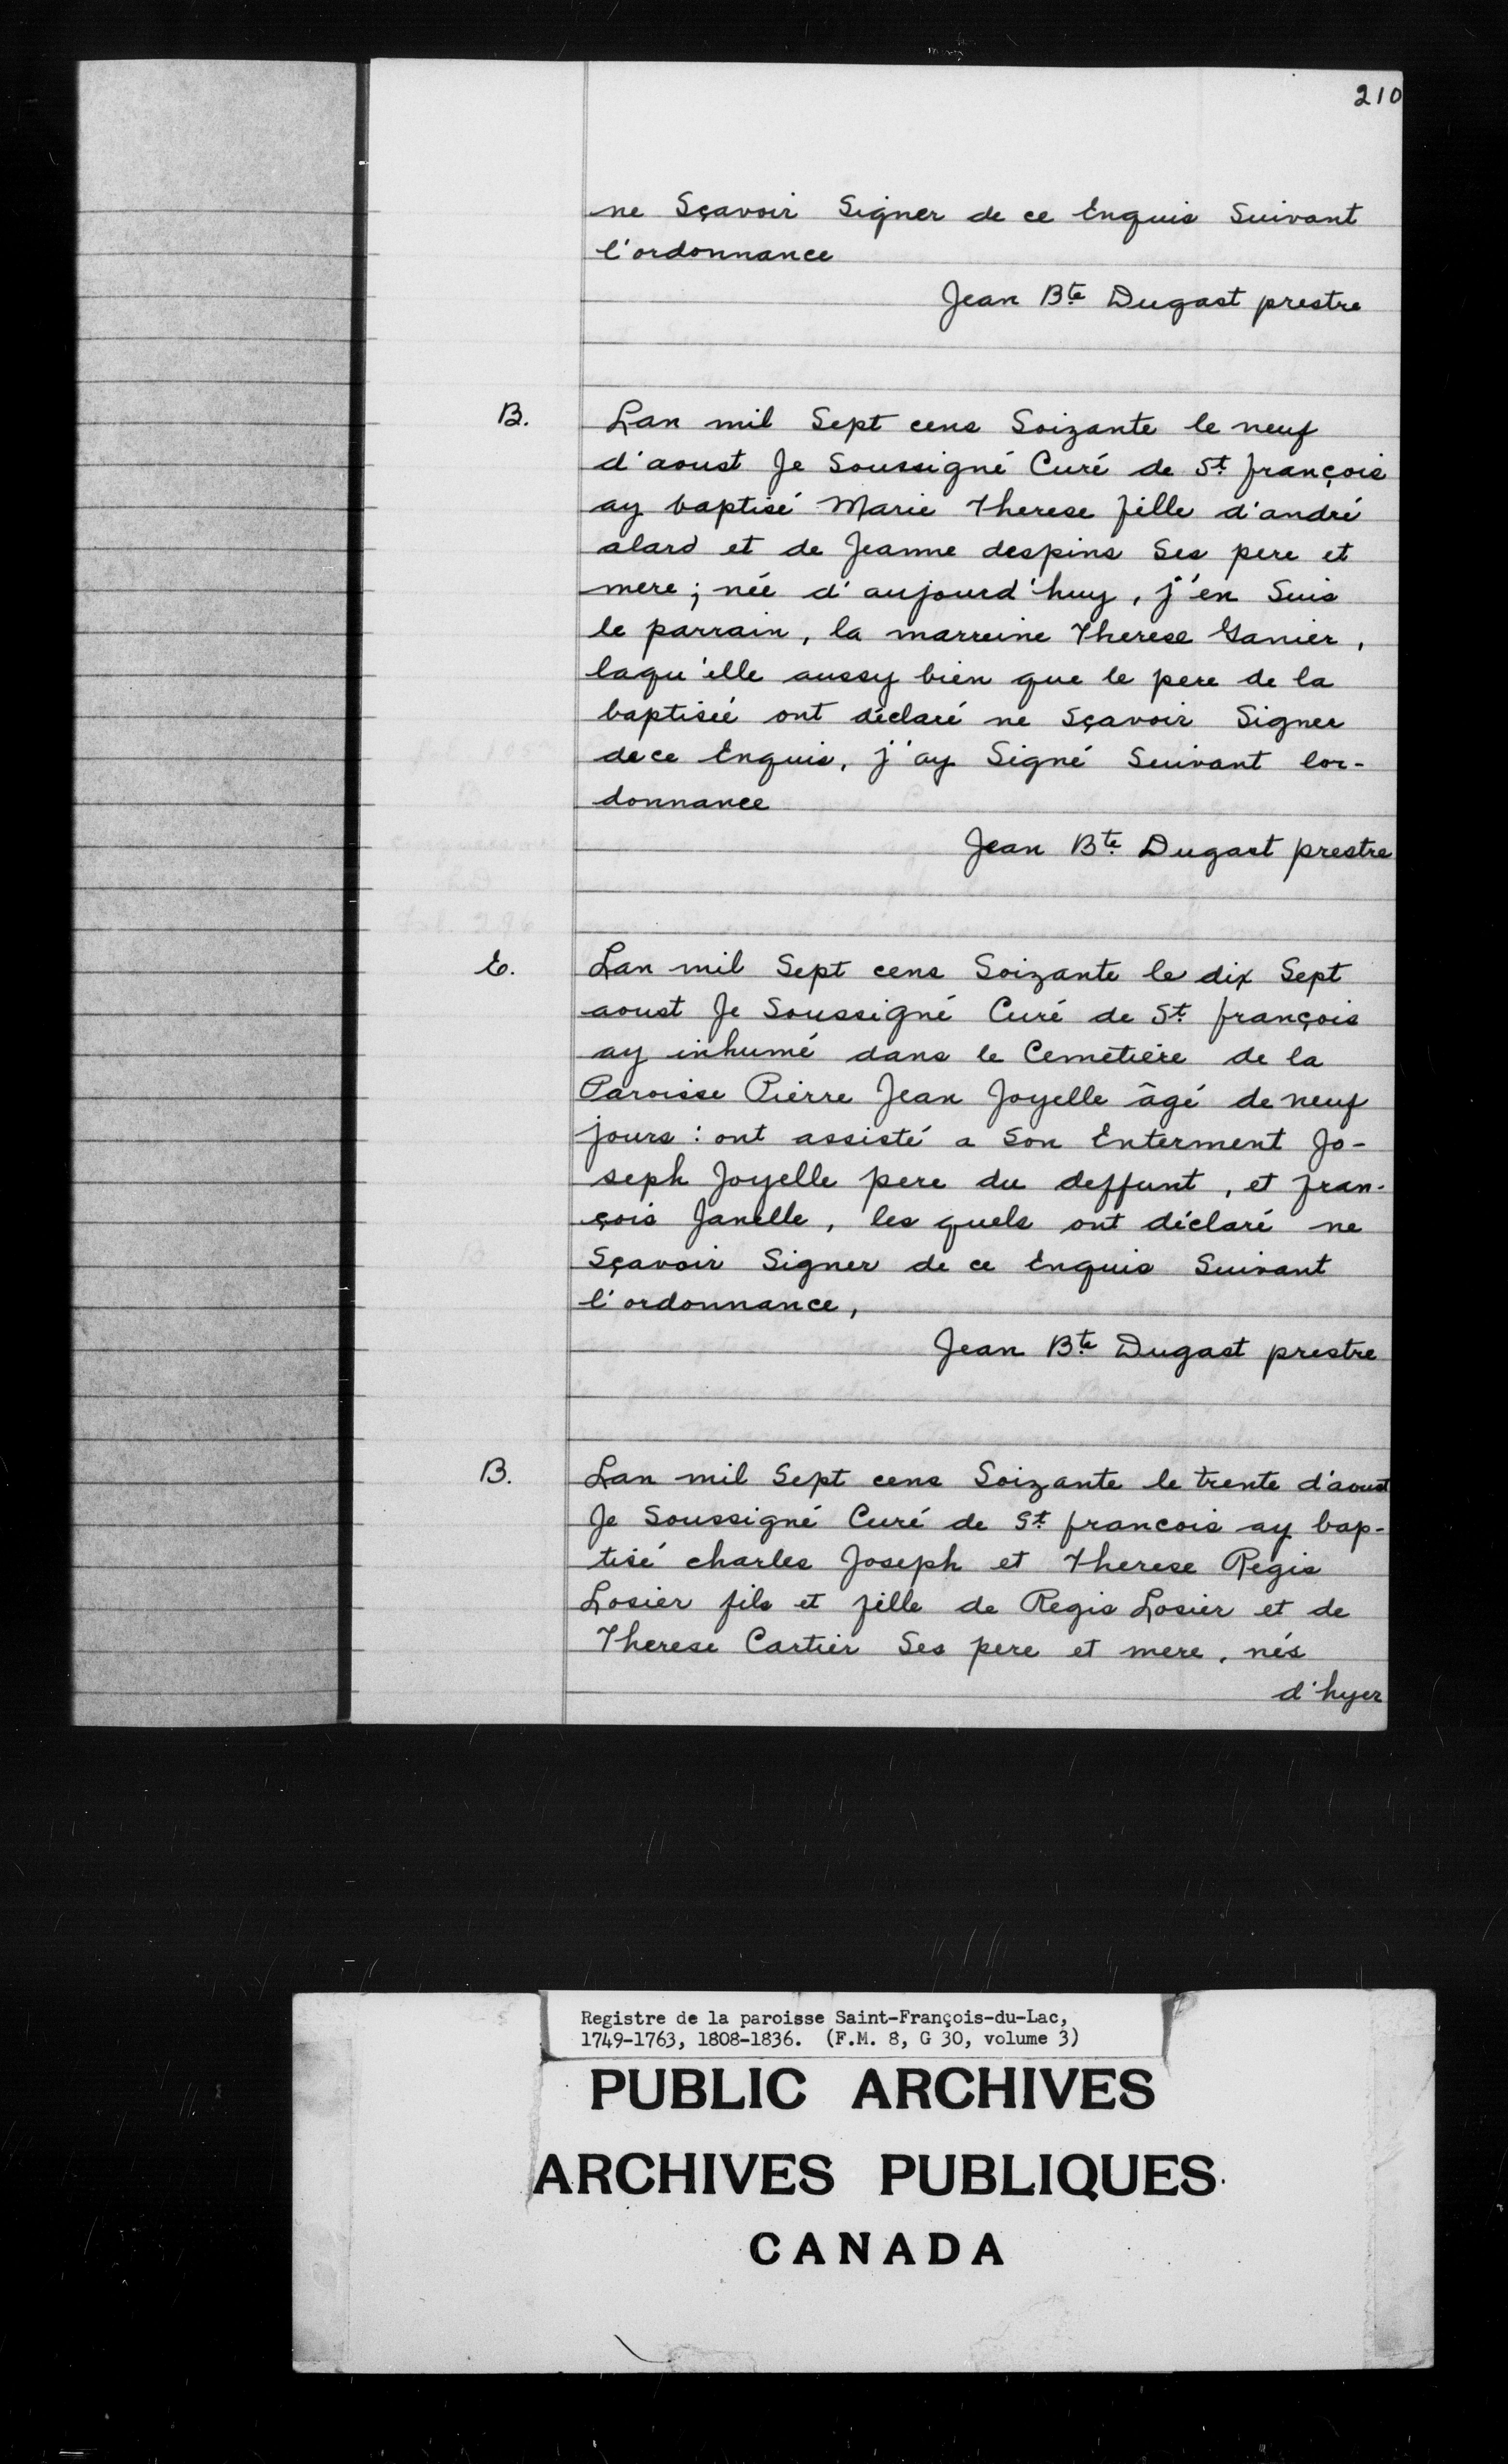 210
ne Sçavoir Signer de ce Enquis Suivant
l'ordonnance
Jean Bte Dugast prestre
B.
Lan mil Sept cens Soizante le neuf
d'aoust Je Soussigné Curé de St. françois
ay baptisé Marie Therese fille d'andré
alard et de Jeanne despins Ses pere et
mere; née d'aujourd'huy, j'en Suis
le parrain, la marreine Therese Ganier,
laqu'elle aussy bien que le pere de la
baptisée ont déclaré ne Sçavoir Signer
de ce Enquis, j'ay Signé Suivant lor-
donnance
Jean Bte Dugast prestre
E.
Lan mil Sept cens Soizante le dix Sept
aoust Je Soussigné Curé de St. françois
ay inhumé dans le Cemetiere de la
Paroisse Pierre Jean Joyelle âgé de neuf
jours : ont assisté a Son Enterment Jo-
seph Joyelle pere du deffunt, et fran-
çois Janelle, les quels ont déclaré ne
Sçavoir Signer de ce Enquis Suivant
l'ordonnance,
Jean Bte Dugast prestre
B.
Lan mil Sept cens Soizante le trente d'aoust
Je Soussigné Curé de St. francois ay bap-
tisé charles Joseph et Therese Regis
Losier fils et fille de Regis Losier et de
Therese Cartier Ses pere et mere, nés
d'hyer
Registre de la paroisse Saint-François-du-Lac,
1749-1763, 1808-1836. (F.M. 8, G 30, volume 3)
PUBLIC ARCHIVES
ARCHIVES PUBLIQUES
CANADA